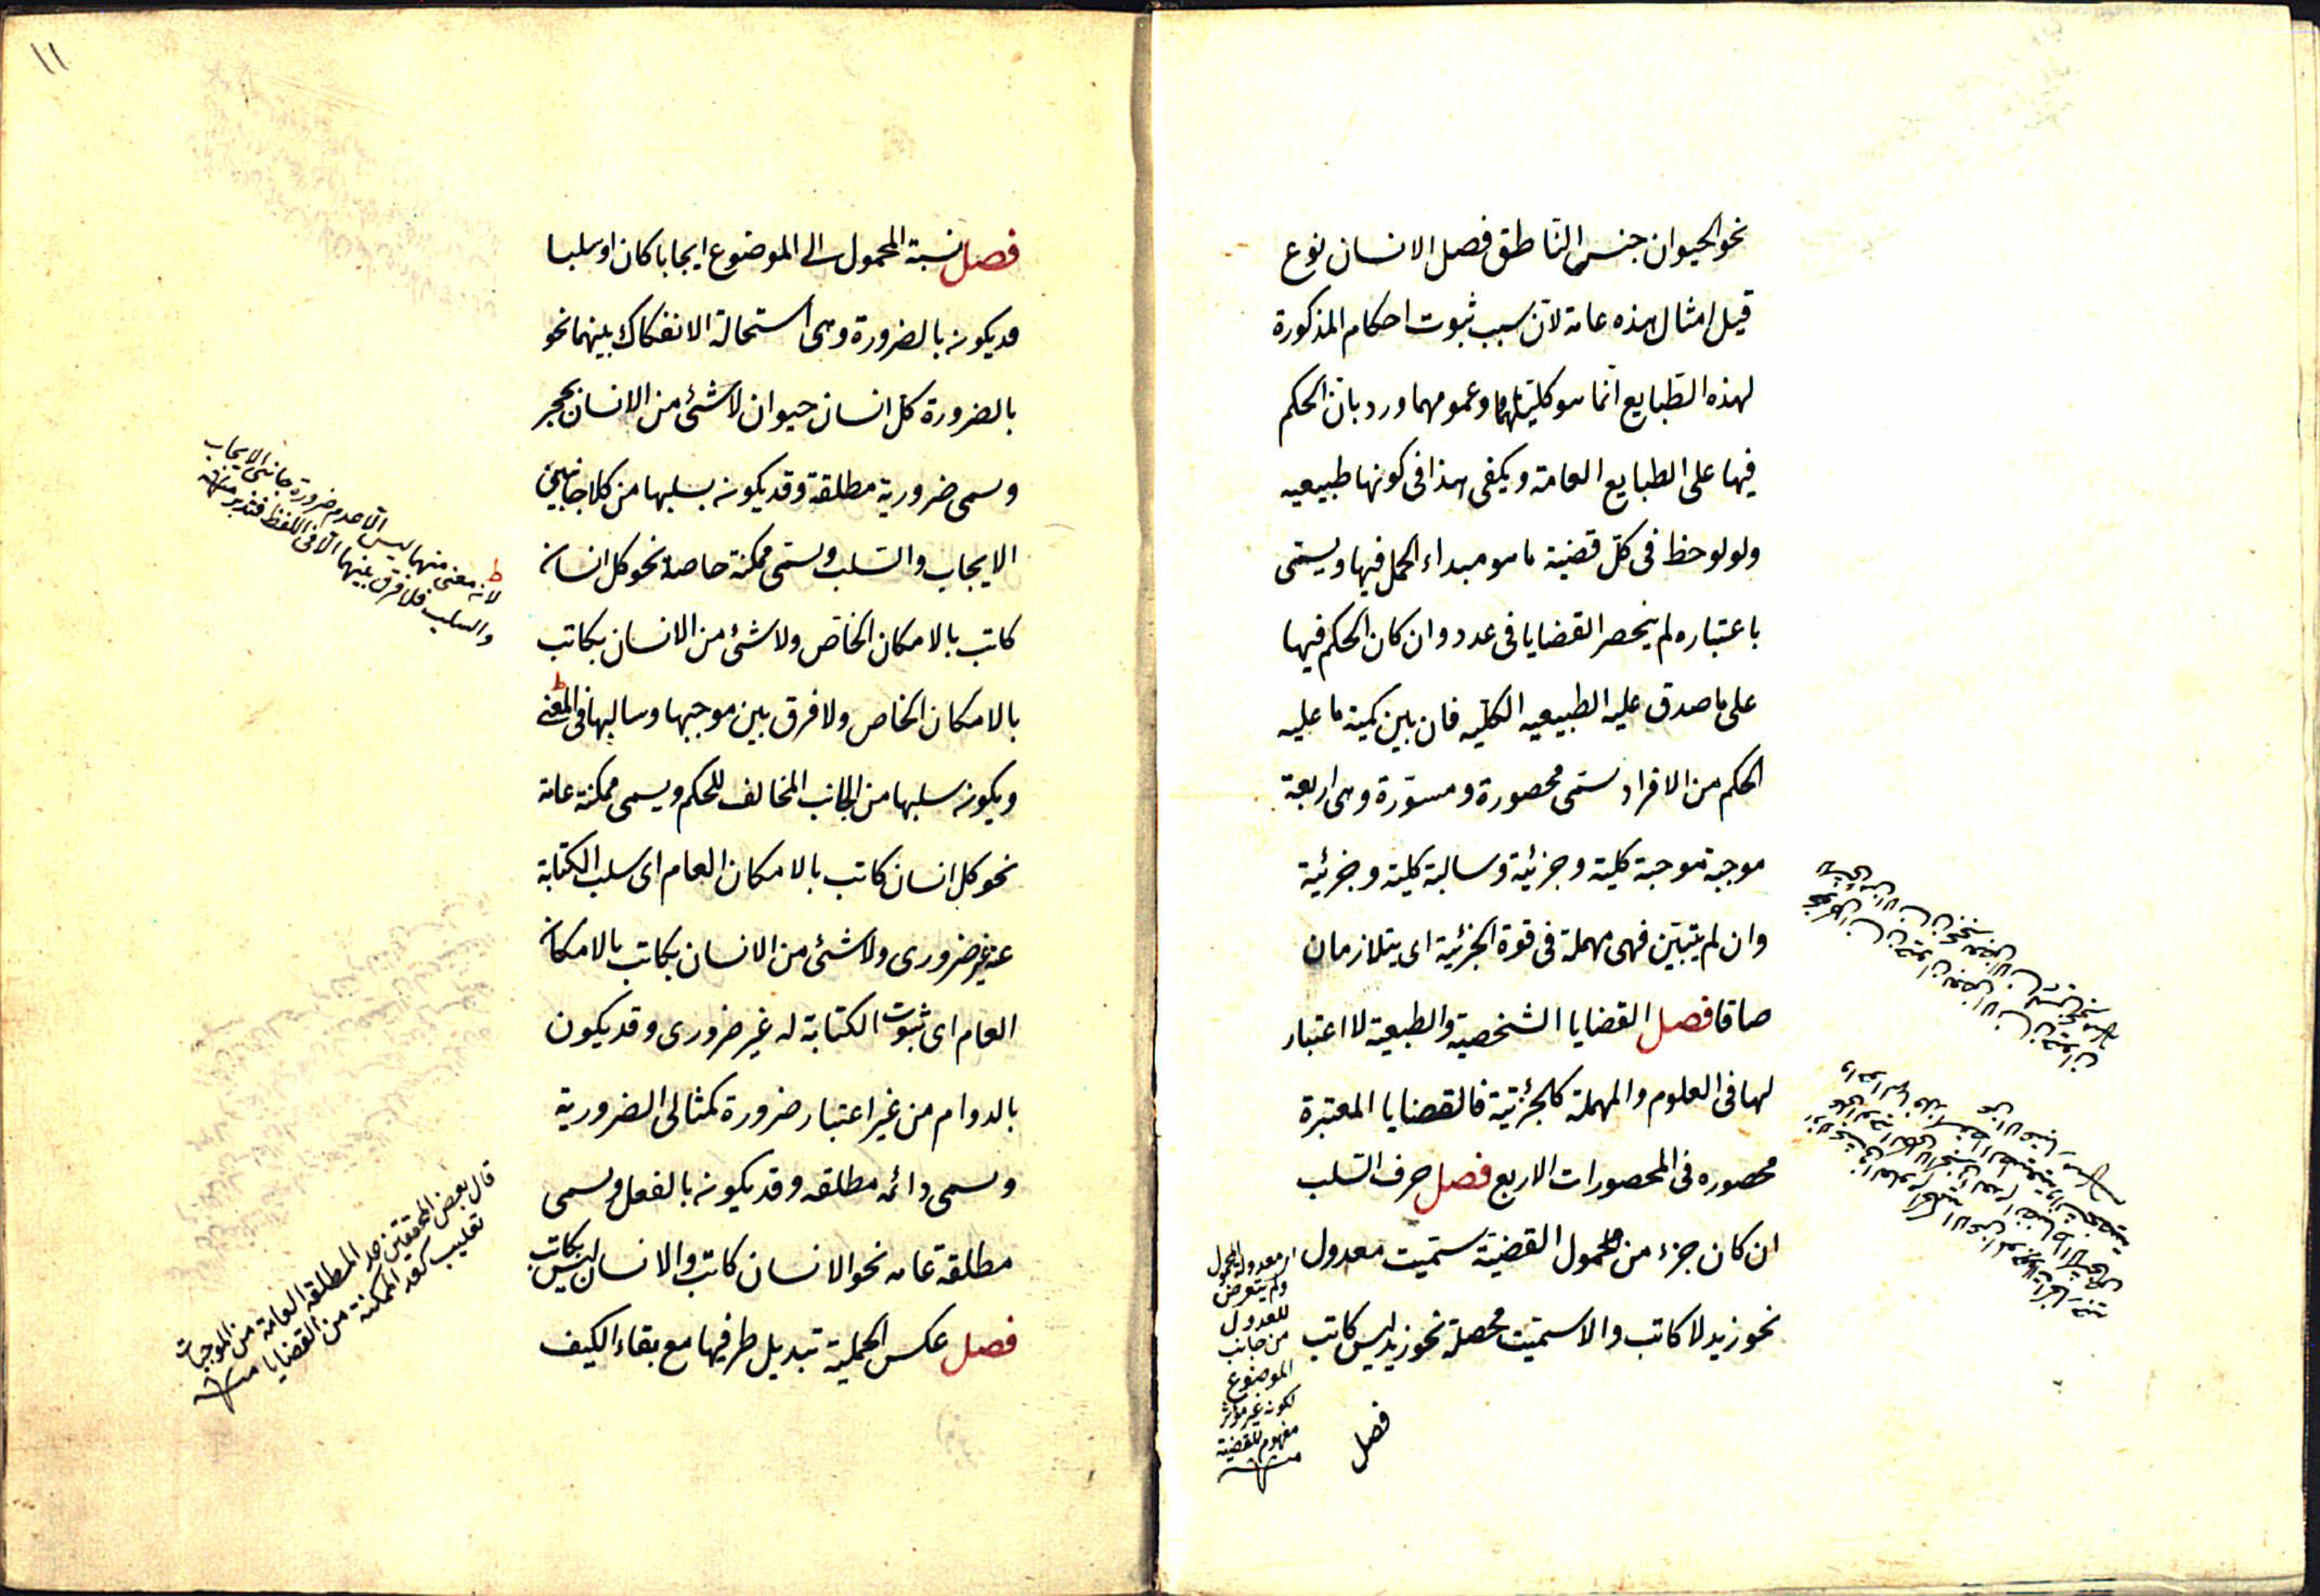 نحو الحيوان جنس الناطق فصل الانسان نوع
قيل امثال هذه عامة لانّ سبب ثبوت احكام المذكورة
لهذه الطّبايع انّما هو كليتها وعمومهما ورد بان الحكم
فيها على الطبايع العامة ويكفى هذا فى كونها طبيعيه
ولو لوحظ فى كلّ قضية ما هو مبداء الحمل فيها ويسمّى
باعتباره لم ينحصر القضايا فى عدد وان كان الحكم فيها
على ما صدق عليه الطبيعيه الكليه فان بين كمية ما عليه
الحكم من الافراد سمّى محصورة ومسوّرة وهى اربعة
موجبة موجبة كلية وجزئية وسالبة كلية وجزئية
وان لم يتبيّن فهى مهملة فى قوة الجزئية اى يتلازمان
صاقا فصل القضايا الشخصية والطبعية لا اعتبار
لها فى العلوم والمهملة كالجزئية فالقضايا المعتبرة
محصوره فى المحصورات الاربع فصل حرف السّلب
ان كان جزء من محمول القضيّة سمّيت معدول
نحو زيد لا كاتب والا سمّيت محصلة نحو زيد ليس كاتب
معدولة المحمول
ولم يتعرض
للعدول
من جانب
الموضوع
لكونه غير مؤثر
مفهوم القضية
منه
فصل
١١
فصل نسبة المحمول الى الموضوع ايجابا كان او سلبا
قد يكون بالضرورة وهى استحالة الانفكاك بينهما نحو
بالضرورة كلّ انسان حيوان لا شئ من الانسان بحجر
وسمى ضرورية مطلقة وقد يكون بسلبها من كلا جانبين
الايجاب والسّلب ويسمّى ممكنة خاصة نحو كل انسان
كاتب بالامكان الخاصّ ولا شئ من الانسان بكاتب
بالامكان الخاص ولا فرق بين موجبها وسالبها فى المعنى
ويكون سلبها من الجانب المخالف للحكم ويسمى ممكنة عامة
نحو كل انسان كاتب بالامكان العام اى سلب الكتابة
عنه غير ضرورى ولا شئ من الانسان بكاتب بالامكان
العام اى ثبوت الكتابة له غير ضرورى وقد يكون
بالدوام من غير اعتبار ضرورة كمثالى الضرورية
وسمى دائمه مطلقه وقد يكون بالفعل وسمى
مطلقة عامه نحو الانسان كاتب والانسان ليس بكاتب
فصل عكس الحملية تبديل طرفيها مع بقاء الكيف
لانه معنى منهما ليس الّا عدم ضرورة جانبى الايجاب
والسلب فلا فرق بينهما الّا فى اللفظ فتدبر منه
قال بعض المحققين عد المطلقة العامة من الموجهات
تغليب كعد الممكنة من القضايا منه